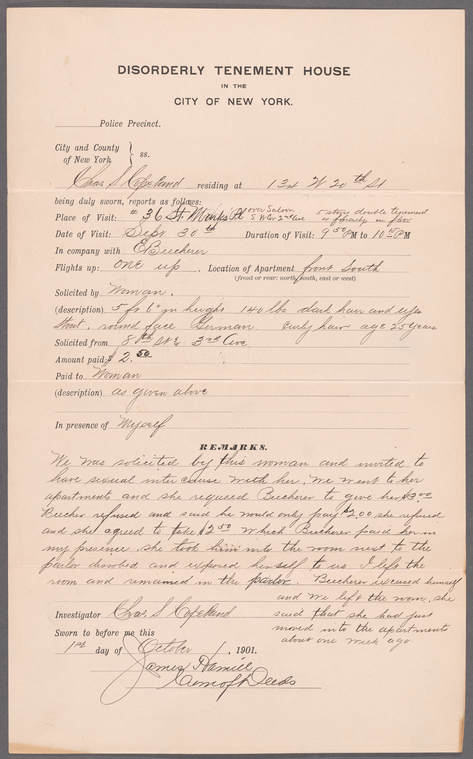 DISORDERLY TENEMENT HOUSE
IN THE
CITY OF NEW YORK.
Police Precinct.
City and County
of New York } ss.
Chas S Copeland residing at 134 W 20th St
being duly sworn, reports as follows:
over Saloon
5 story double tenement
Place of Visit: # 36 St Marks Pl S W Cor 2nd Ave 4 family in floor
Date of Visit: Sept 30th Duration of Visit: 9 50 PM to 10 PM
In company with E Beecherer
Flights up: one up. Location of Apartment front South
(front or rear: north, south, east or west)
Solicited by Woman.
(description) 5 ft 6" in height 140 lbs dark hair and eyes
Stout, round face German. Curly hair age 25 years
Solicited from 8th St & 3rd Ave
Amount paid: $ 2.50
Paid to Woman
(description) as given above
In presence of Myself
REMARKS.
We was solicited by this woman and invited to
have sexual inter course with her. We went to her
apartments and she reqused Beecherer to give her $3.00
Beecher refused and said he would only pay $2.00 she refused
and she agreed to take $2.50 which Beecherer paid her in
my presence. she took him into the room next to the
parlor and exposed herself to us I left the
room and remained in the parlor. Beecherer excused himself
and we left the room, she
said that she had just
moved into the apartments
about one week ago
Investigator Chas. S Copeland
Sworn to before me this
1st day of October, 1901.
James Hamill
Com of Deeds